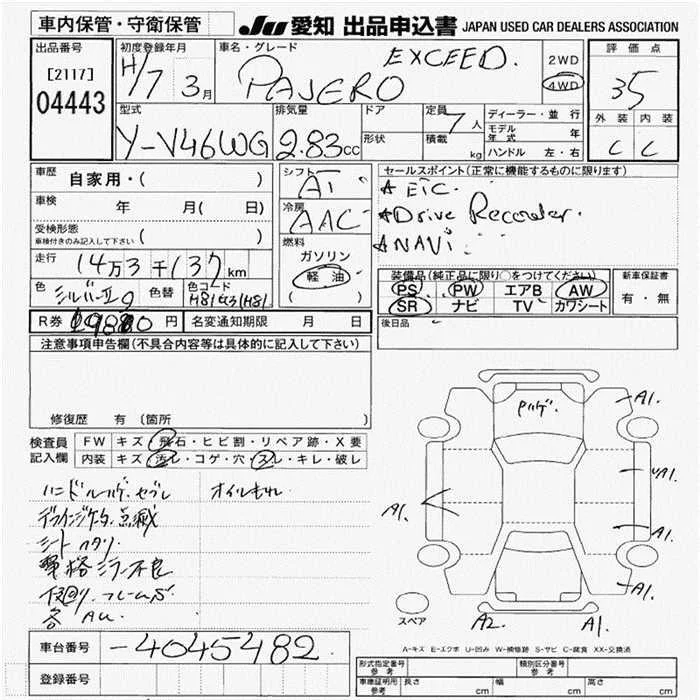 車内保管・守衛保管
JU 愛知 出品申込書 JAPAN USED CAR DEALERS ASSOCIATION
出品番号 [2117] 04443
初度登録年月 H/7 3月
車名・グレード PAJERO EXCEED.
2WD
4WD
評価点 35
外装 内装
C C
型式 Y-V46WG
排気量 2.83cc
ドア
形状
定員 7人
積載 kg
ディーラー・並行
モデル年式 年
ハンドル 左・右
車歴 自家用・( )
車検 年 月( 日)
受検形態
車検付きのみ記入して下さい ( )
走行 14万3千137km
色 シルバーIIク
色替
色コード H81K31H81
シフト AT
冷房 AAC
燃料
ガソリン
軽油
( )
セールスポイント(正常に機能するものに限ります)
ETC.
Drive Recorder.
NAVI
装備品(純正品に限り○をつけてください)
PS PW エアB AW
SR ナビ TV カワシート
新車保証書
有・無
後日品
R券 円
名変通知期限 月 日
注意事項申告欄(不具合内容等は具体的に記入して下さい)
修復歴 有 (箇所 )
検査員記入欄
FW キズ・飛石・ヒビ割・リペア跡・X要
内装 キズ・汚レ・コゲ・穴・スレ・キレ・破レ
ハンドルハゲ.セブレ
オイルもれ
シートヘタリ.
電格ミラー不良
下回り.フレームS
各AU
ハゲ.
A1.
A1.
A1.
A1.
A1.
A2.
A1.
スペア
A-キズ E-エクボ U-凹み W-補修跡 S-サビ C-腐食 XX-交換済
車台番号 -4045482
登録番号
形式指定番号 参考
類別区分番号 参考
車庫証明用 参考
長さ cm
幅 cm
高さ cm